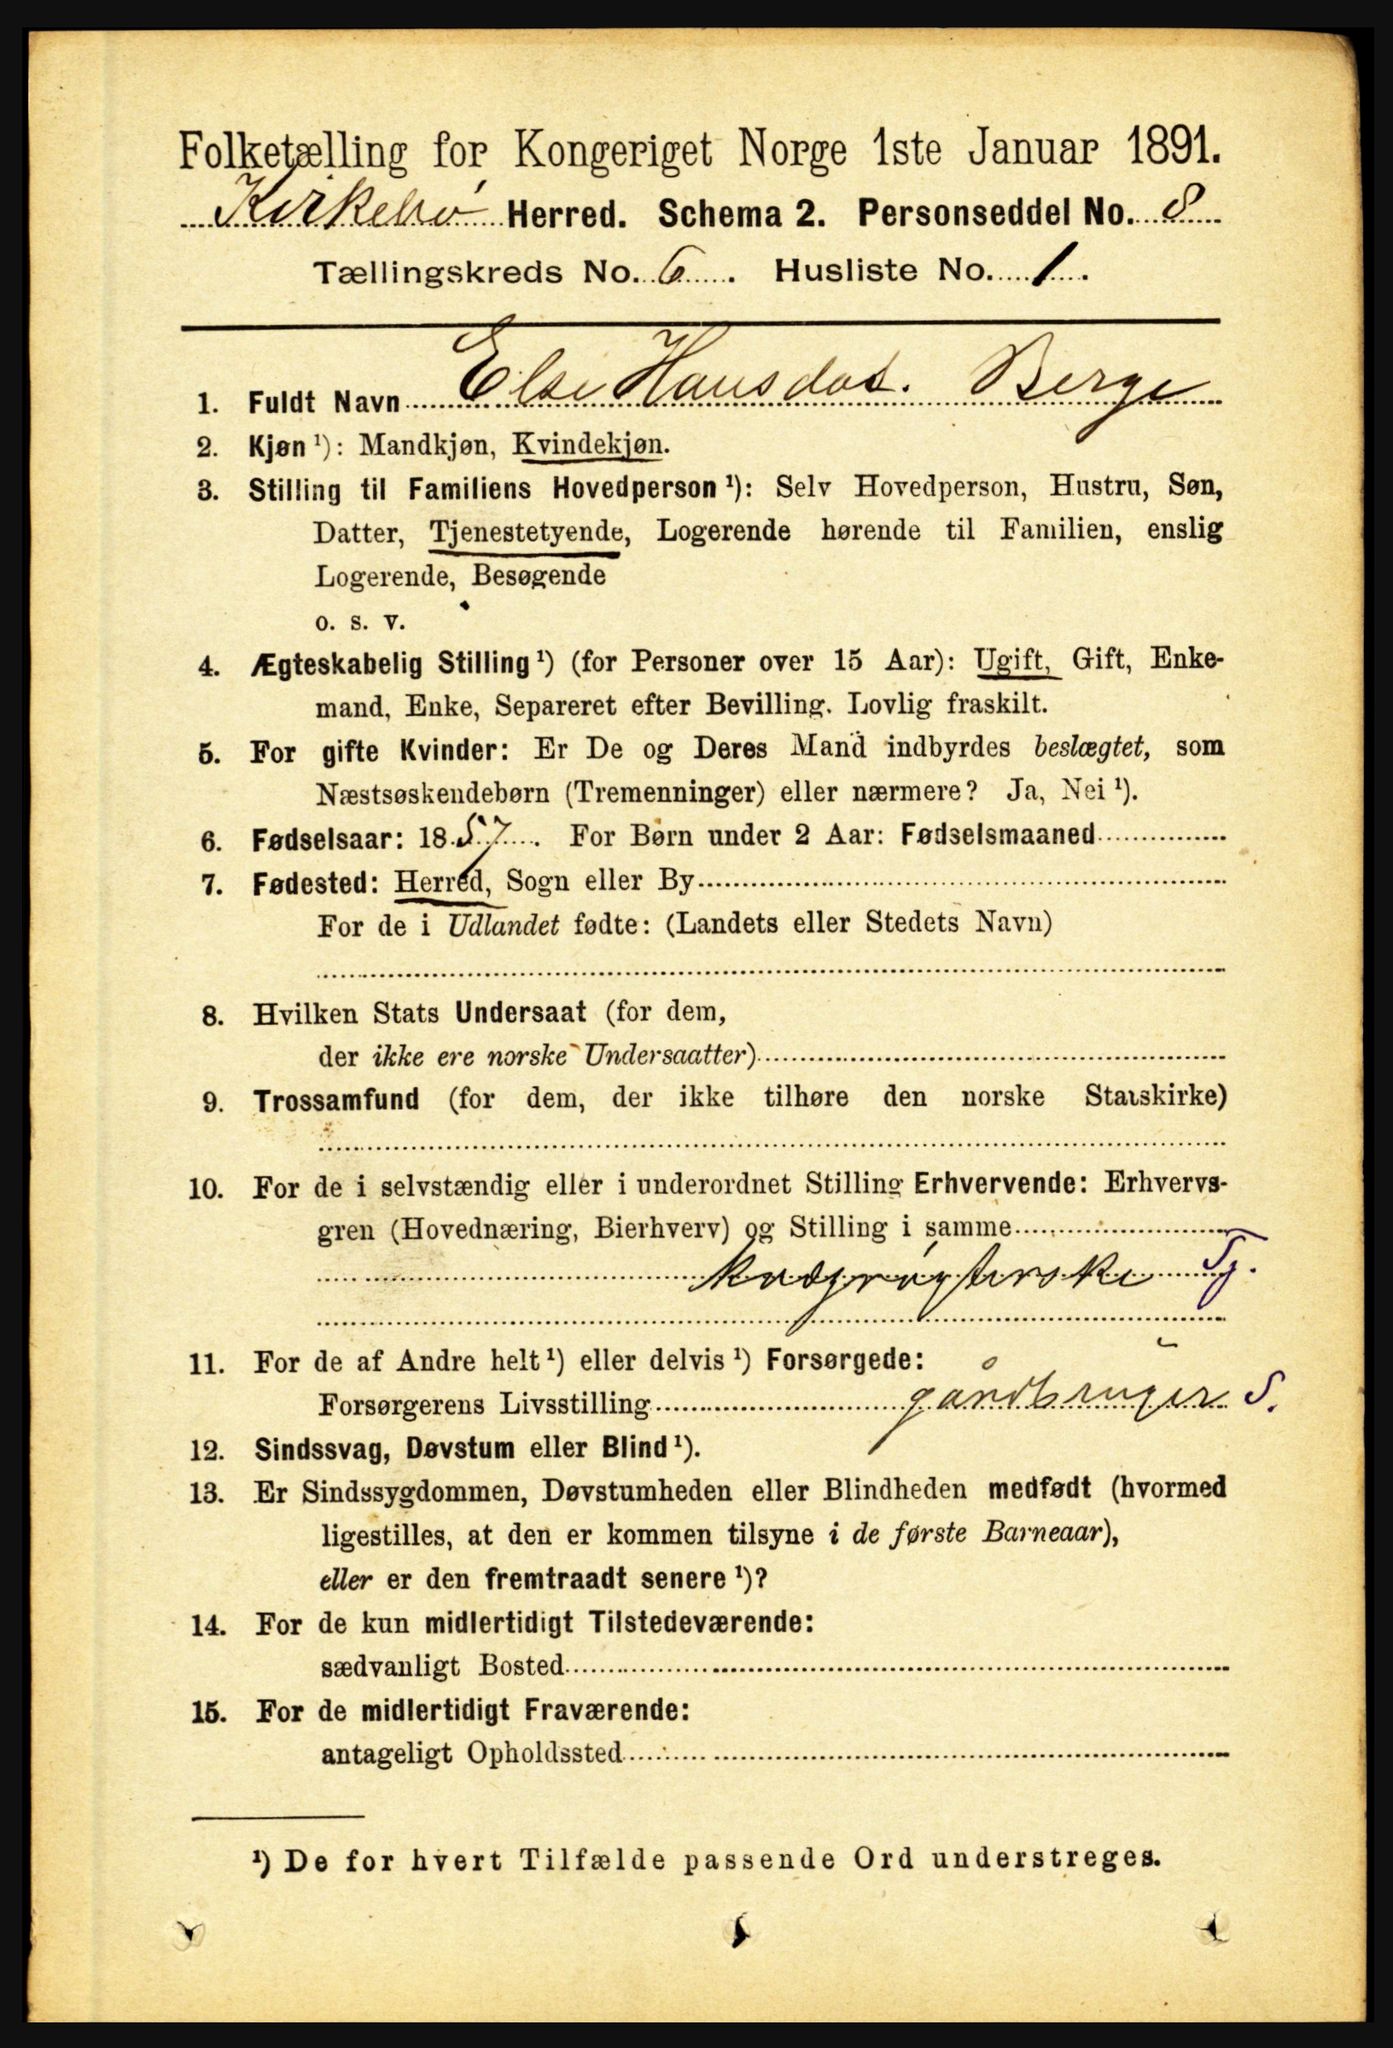 Folketælling for Kongeriget Norge 1ste Januar 1891.
Kirkebø Herred. Schema 2. Personseddel No. 8
Tællingskreds No. 6. Husliste No. 1.
1. Fuldt Navn Else Hansdat. Berge
2. Kjøn ¹): Mandkjøn, Kvindekjøn.
3. Stilling til Familiens Hovedperson ¹): Selv Hovedperson, Hustru, Søn,
Datter, Tjenestetyende, Logerende hørende til Familien, enslig
Logerende, Besøgende
o. s. v.
4. Ægteskabelig Stilling ¹) (for Personer over 15 Aar): Ugift, Gift, Enke-
mand, Enke, Separeret efter Bevilling. Lovlig fraskilt.
5. For gifte Kvinder: Er De og Deres Mand indbyrdes beslægtet, som
Næstsøskendebørn (Tremenninger) eller nærmere? Ja, Nei ¹).
6. Fødselsaar: 1857. For Børn under 2 Aar: Fødselsmaaned
7. Fødested: Herred, Sogn eller By
For de i Udlandet fødte: (Landets eller Stedets Navn)
8. Hvilken Stats Undersaat (for dem,
der ikke ere norske Undersaatter)
9. Trossamfund (for dem, der ikke tilhøre den norske Statskirke)
10. For de i selvstændig eller i underordnet Stilling Erhvervende: Erhvervs-
gren (Hovednæring, Bierhverv) og Stilling i samme
Tj.
11. For de af Andre helt ¹) eller delvis ¹) Forsørgede:
Forsørgerens Livsstilling gårdbruger S.
12. Sindssvag, Døvstum eller Blind ¹).
13. Er Sindssygdommen, Døvstumheden eller Blindheden medfødt (hvormed
ligestilles, at den er kommen tilsyne i de første Barneaar),
eller er den fremtraadt senere ¹)?
14. For de kun midlertidigt Tilstedeværende:
sædvanligt Bosted
15. For de midlertidigt Fraværende:
antageligt Opholdssted
¹) De for hvert Tilfælde passende Ord understreges.